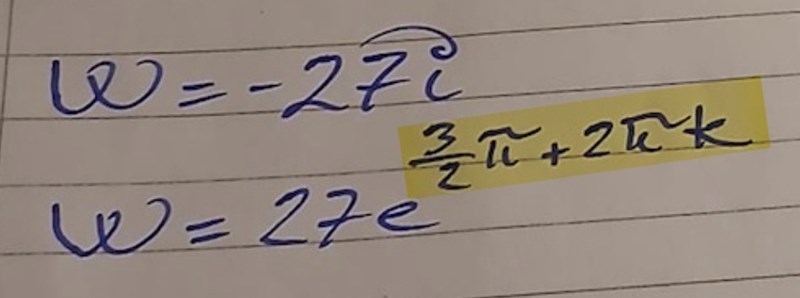 w = -27i
w = 27e^{\frac{3}{2}π + 2πk}